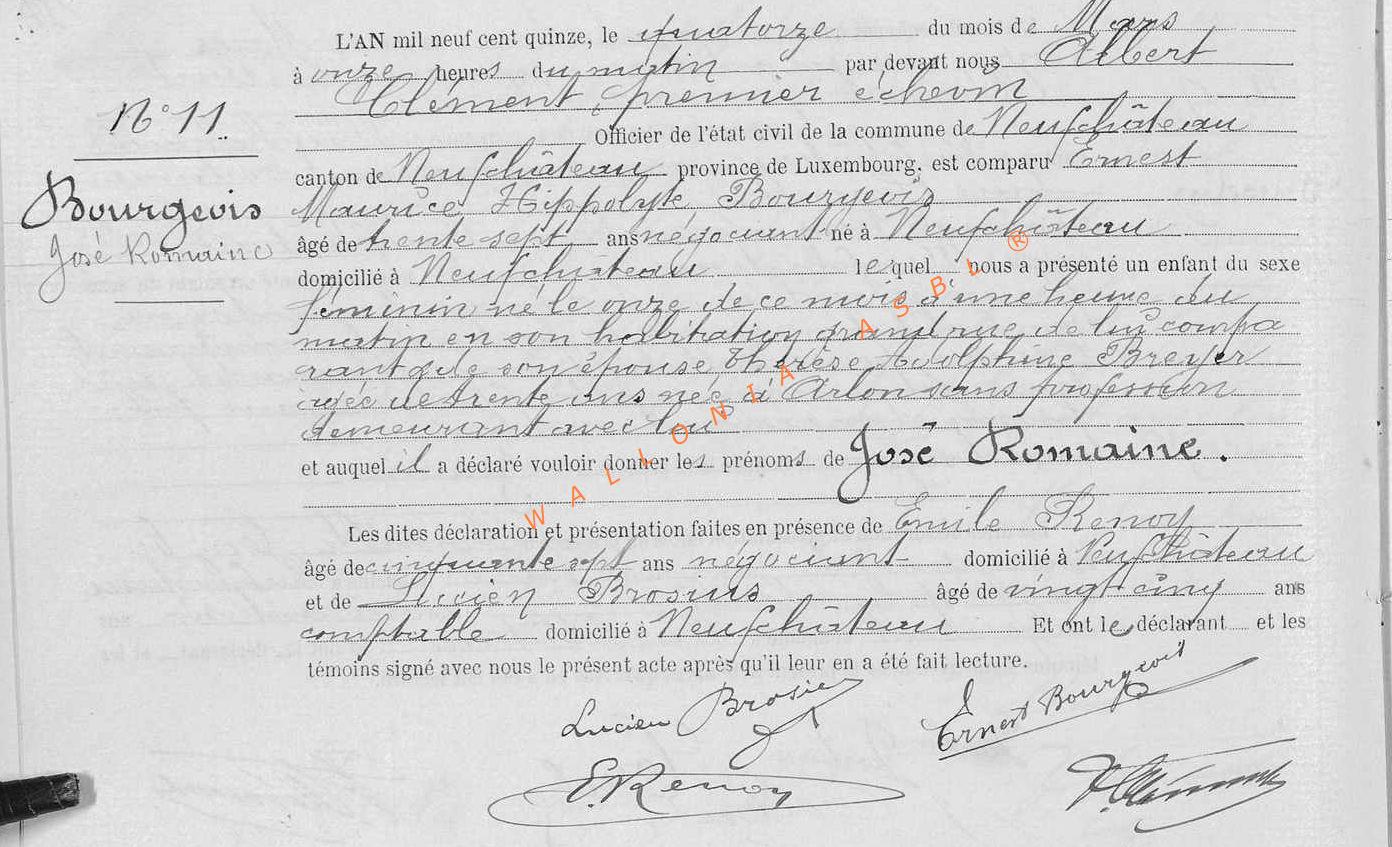 L'AN mil neuf cent quinze, le quatorze du mois de Mars
à onze heures du matin par devant nous Albert
Clément, premier échevin
N° 11.
Officier de l'état civil de la commune de Neufchâteau
canton de Neufchâteau province de Luxembourg, est comparu Ernest
Bourgeois
Maurice Hippolyte Bourgeois
José Romaine
âgé de trente sept ans négociant né à Neufchâteau
domicilié à Neufchâteau lequel nous a présenté un enfant du sexe
féminin né le onze de ce mois à une heure du
matin en son habitation grand rue, de lui compa
rant et de son épouse Thérèse Adolphine Breyer
âgée de trente ans née à Arlon sans profession
demeurant avec lui
et auquel il a déclaré vouloir donner les prénoms de José Romaine.
Les dites déclaration et présentation faites en présence de Emile Renoy
âgé de cinquante sept ans négociant domicilié à Neufchâteau
et de Lucien Brosius âgé de vingt cinq ans
comptable domicilié à Neufchâteau Et ont le déclarant et les
témoins signé avec nous le présent acte après qu'il leur en a été fait lecture.
Lucien Brosius
Ernest Bourgeois
E. Renoy
A. Clément
WALLONIA ASBL ®